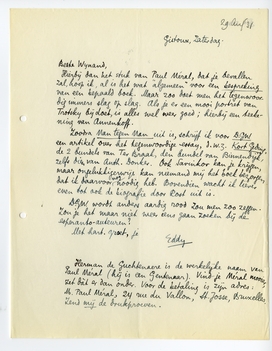 29 Aug/31
Gistoux, Zaterdag.
Beste Wynand,
Hierbij dan het stuk van Paul Méral, dat je bevallen
zal, hoop ik, al is het wat "algemeen" voor een bespreking
van een bepaald boek. Maar zoo doet men het tegenwoor-
dig immers slag op slag. Als je er een mooi portret van
Trotsky bij doet, is alles wel weer goed; hierbij een teeke-
ning van Annenkof.
Zoodra Man tegen Man uit is, schrijf ik voor DGW
een artikel over het tegenwoordige essay, d.w.z. Kort Geding,
de 2 bundels van Ter Braak, den bundel van Binnendijk,
zelfs die van Anth. Donker. Ook daardoor kan je krijgen,
maar ongelukkigerwijs kan niemand mij het boek bezorgen
dat ik daarvoor noodig heb. Bovendien wacht ik liever
even tot ook de biografie door Kool uit is.
DGW wordt anders aardig rood zou men zoo zeggen.
Zou je het maar niet weer eens gaan zoeken bij de
esperanto-auteurs?
Met hart. groet, je
Eddy
Herman de Guchtenaere is de werkelijke naam van
Paul Méral (hij is een Gentenaar). Vind je Méral mooier,
zet dát er dan onder. Voor de betaling is zijn adres:
M. Paul Méral, 24 rue du Vallon, St. Josse, Bruxelles.
Zend mij de drukproeven.